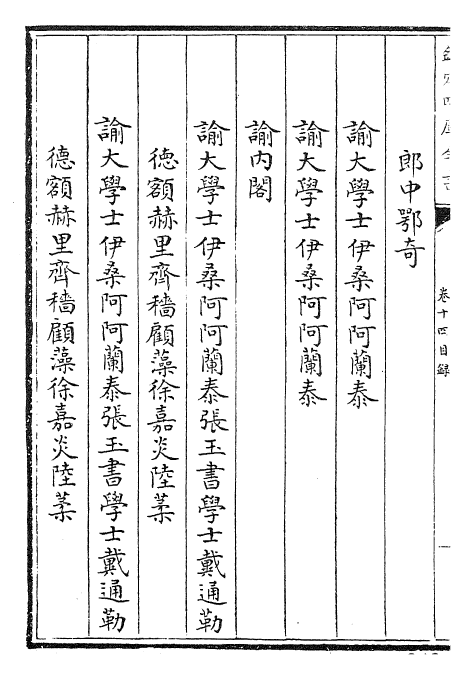 欽定四庫全書
卷十四目錄
郎中鄂奇
諭大學士伊桑阿阿蘭泰
諭大學士伊桑阿阿蘭泰
諭內閣
諭大學士伊桑阿阿蘭泰張玉書學士戴通勒
德額赫里齊穡顧藻徐嘉炎陸葇
諭大學士伊桑阿阿蘭泰張玉書學士戴通勒
德額赫里齊穡顧藻徐嘉炎陸葇